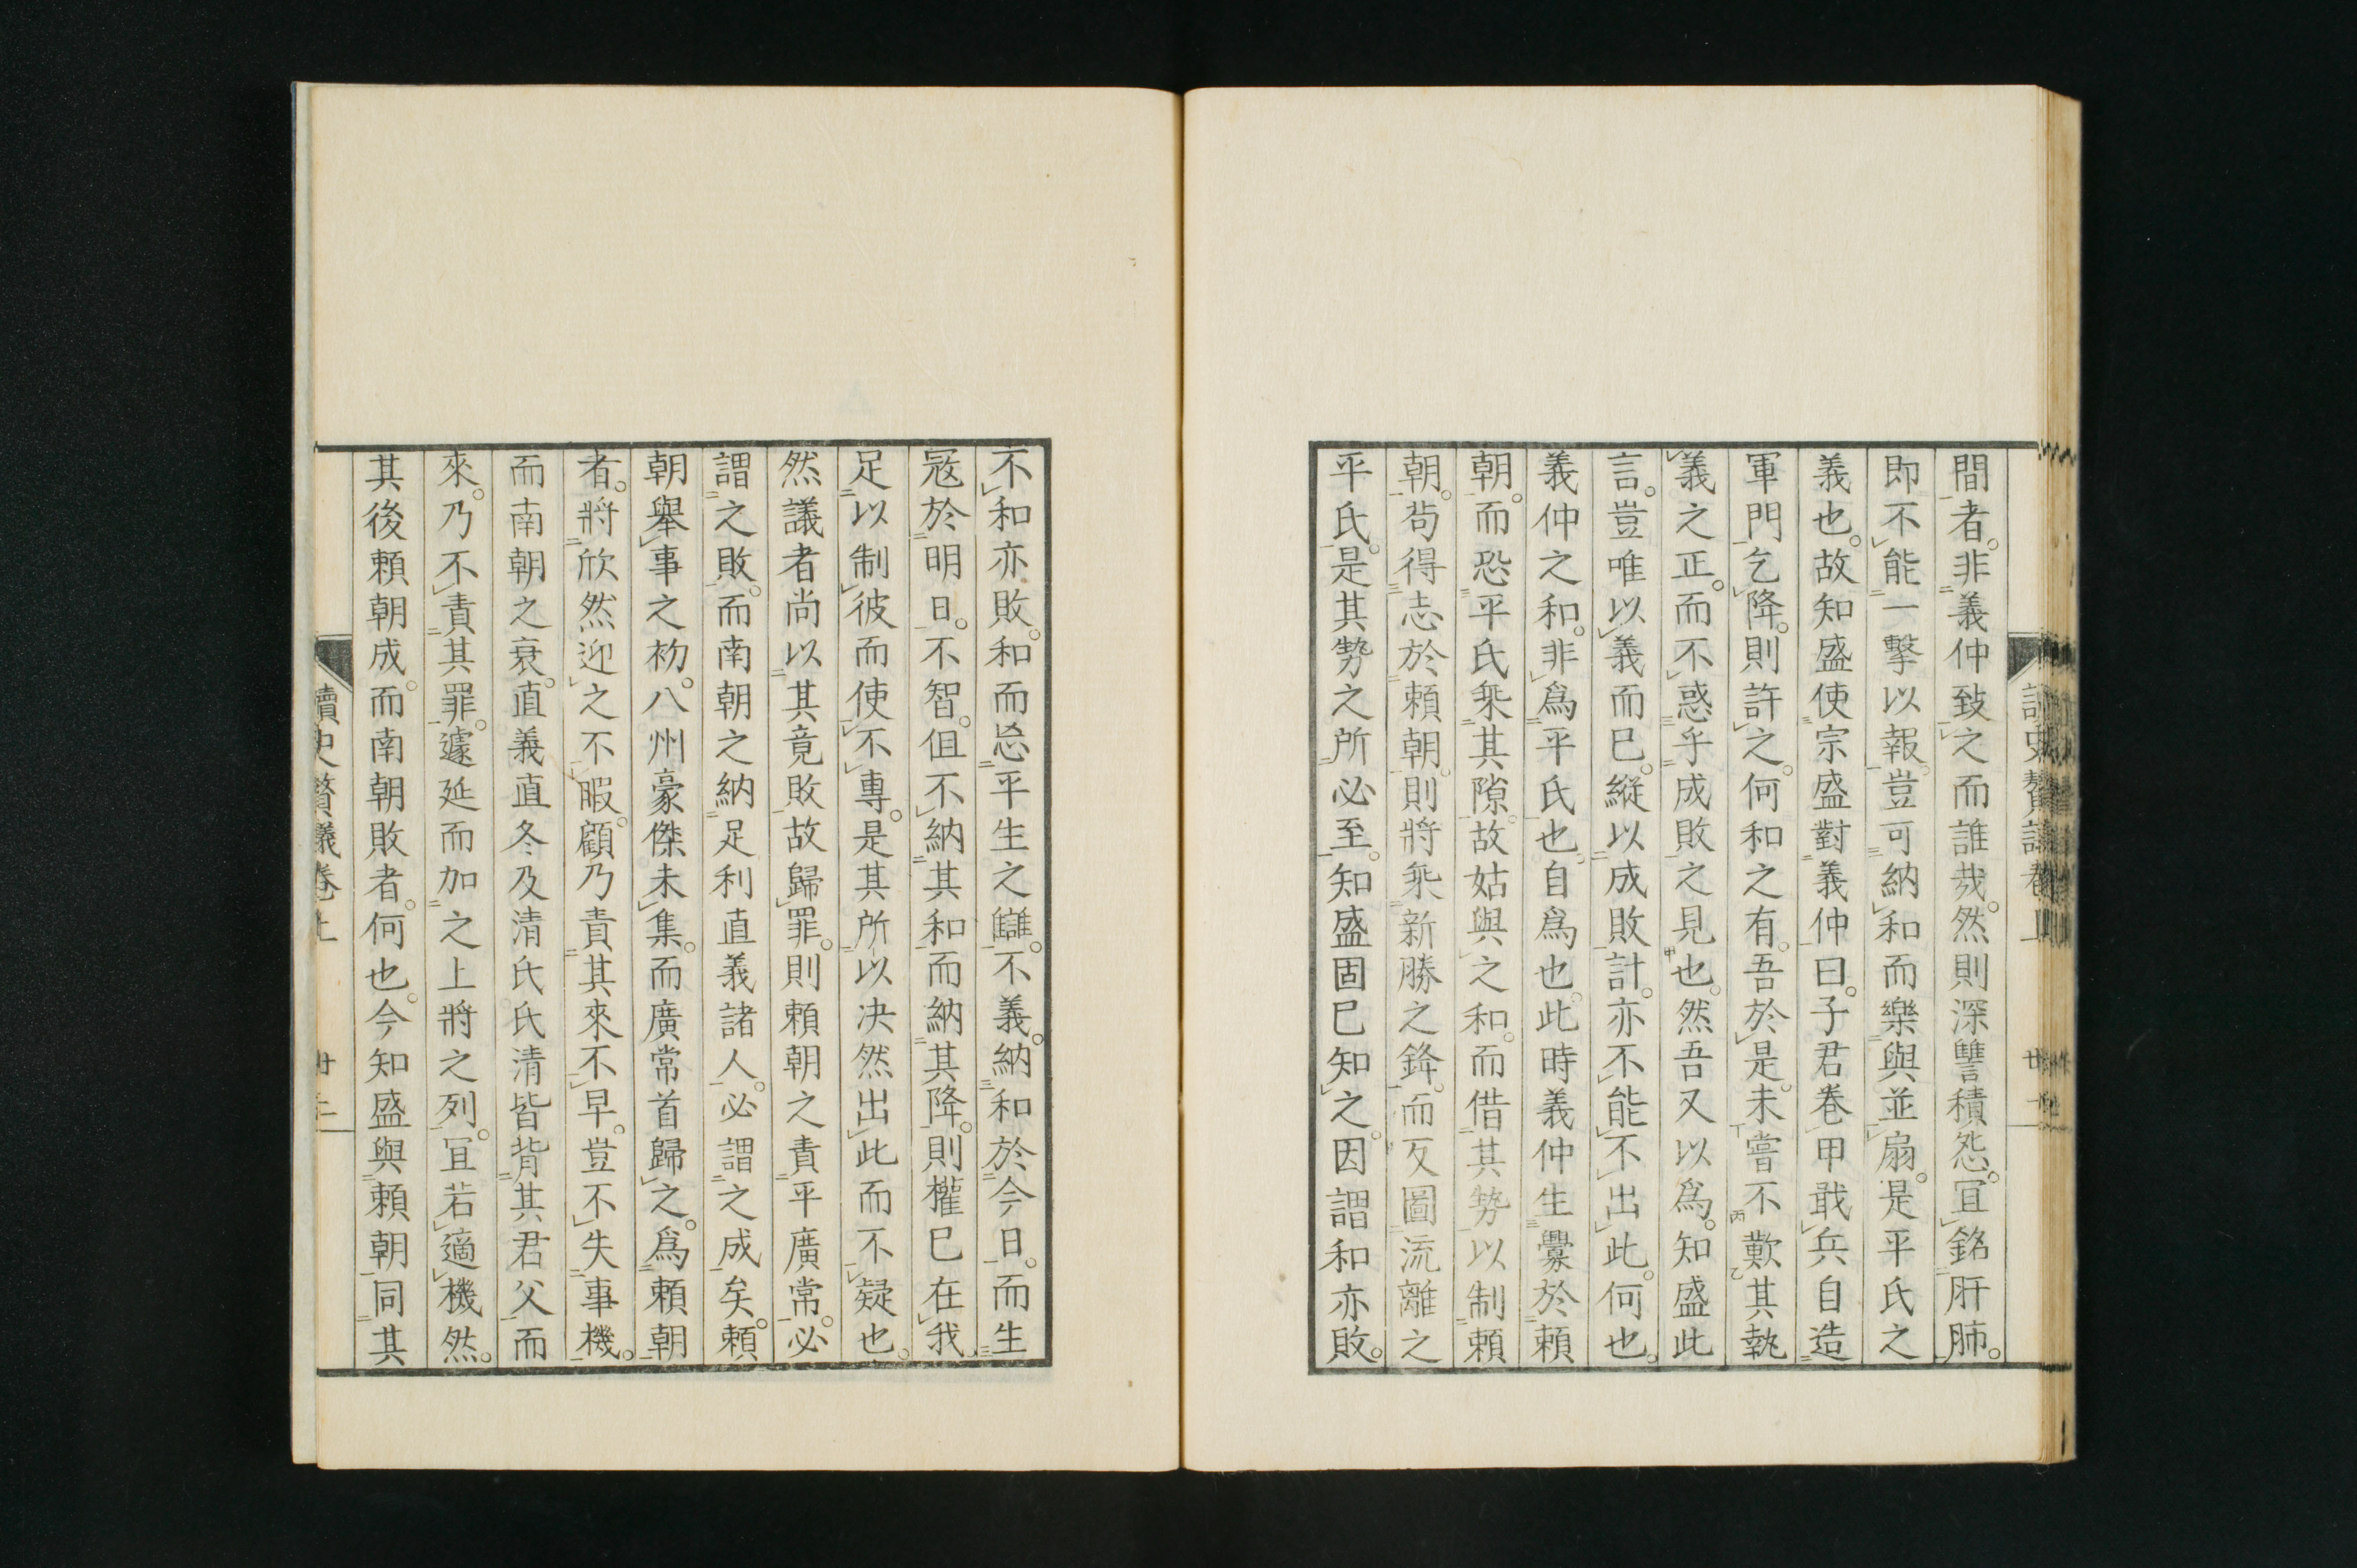 間者。非義仲致之而誰哉。然則深讐積怨。冝銘肝肺。
即不能一擊以報。豈可納和而樂與並扇。是平氏之
義也。故知盛使宗盛對義仲曰。子君卷甲戢兵自造
軍門乞降。則許之。何和之有。吾於是未嘗不歎其執
義之正。而不惑乎成敗之見也。然吾又以爲。知盛此
言。豈唯以義而已。縱以成敗計。亦不能不出此。何也。
義仲之和。非爲平氏也。自爲也。此時義仲生釁於賴
朝。而恐平氏乘其隙。故姑與之和。而借其勢以制賴
朝。苟得志於賴朝。則將乘新勝之鋒。而反圖流離之
平氏。是其勢之所必至。知盛固已知之。因謂和亦敗。
不和亦敗。和而忘平生之讎。不義。納和於今日。而生
寇於明日。不智。但不納其和而納其降。則權已在我
足以制彼而使不專。是其所以決然出此而不疑也。
然議者尚以其竟敗故歸罪。則賴朝之責平廣常。必
謂之敗。而南朝之納足利直義諸人。必謂之成矣。賴
朝舉事之初。八州豪傑未集。而廣常首歸之。爲賴朝
者。將欣然迎之不暇。顧乃責其來不早。豈不失事機。
而南朝之衰。直義直冬及清氏氏清皆背其君父而
來。乃不責其罪。遽延而加之上將之列。冝若適機然。
其後賴朝成。而南朝敗者。何也。今知盛與賴朝同其
讀史贅議卷上 廿二